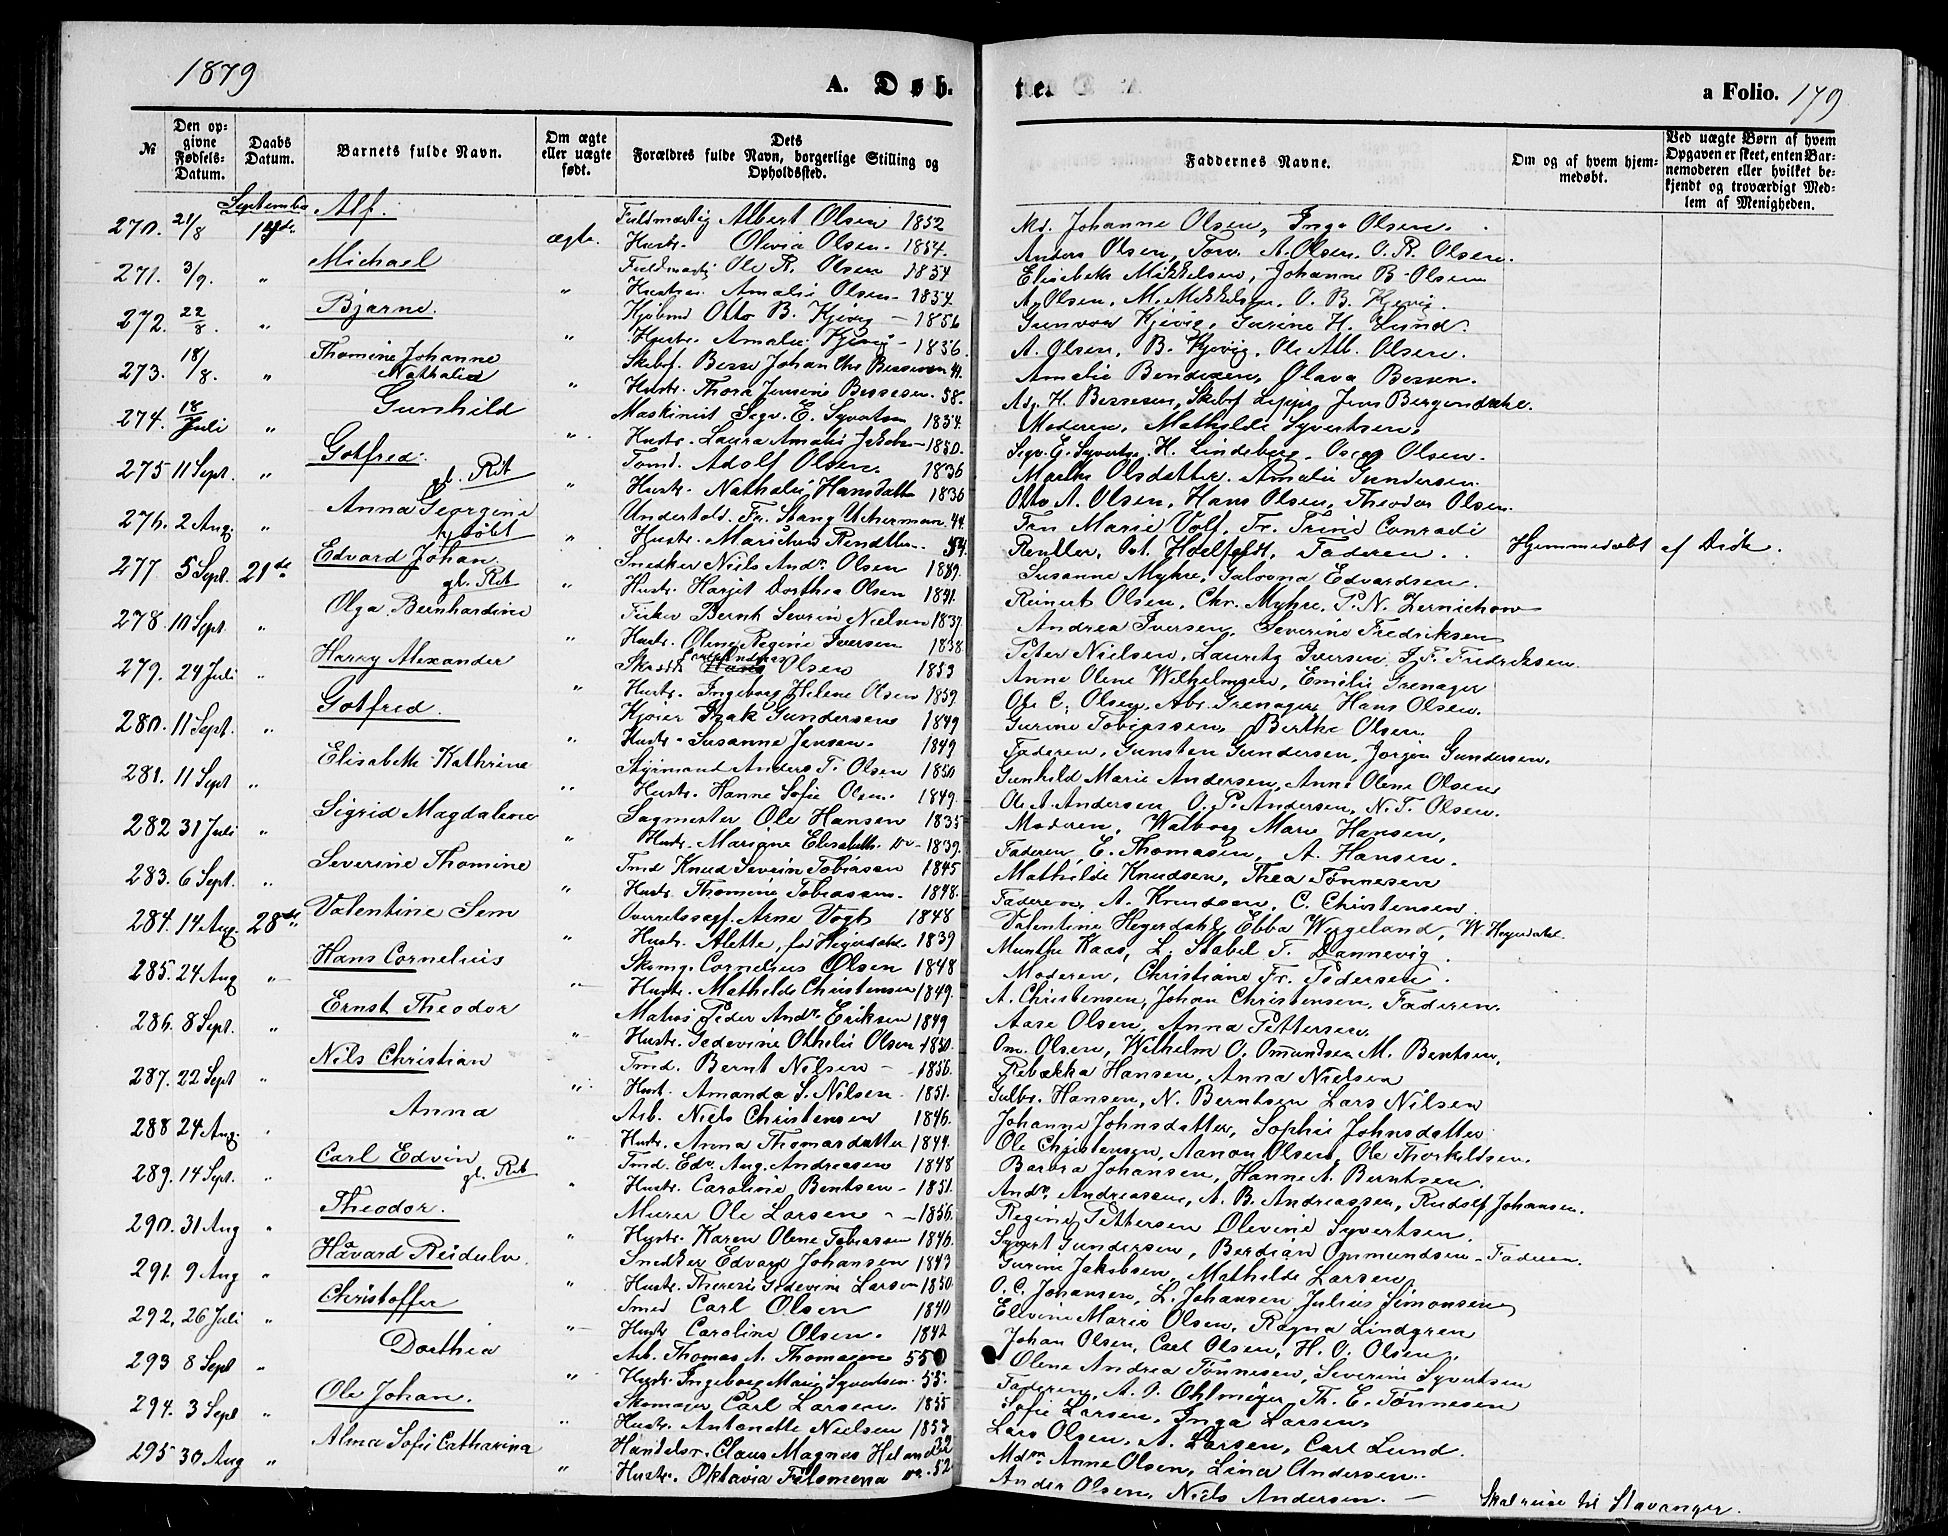 1879
A. Døb-
№
Den opgivne Fødsels-Datum.
Daabs Datum.
Barnets fulde Navn.
Om ægte eller uægte født.
Dets Forældres fulde Navn, borgerlige Stilling og Opholdssted.
270. 21/8 September 14de Alf. ægte. Fuldmægtig Albert Olsen 1852
Hustr. Olivia Olsen. 1854.
271. 3/9. " Michael " Fuldmægtig Ole R. Olsen 1854
Hustru Amalie Olsen 1854.
272. 22/8. " Bjarne. " Kjøbmd Otto B. Kjevig 1856
Hustr. Amalie Kjevig 1856.
273. 18/8. " Thomine Johanne Nathalie " Skibsf. Besse Johan Chr Bessesen 41.
Hustr. Thora Jensine Bessesen. 58.
274. 18 Juli " Gunhild " Maskinist Segv. E. Syvertsen 1854.
Hustr. Laura Amalie Jakobs 1850.
275 11 Sept. " Gotfred. gl. Rit " Tomd. Adolf Olsen. 1836
Hustr. Nathalie Hansdatter 1836
276. 2 Aug. " Anna Georgine hj. døbt " Undertold. Fr. Stang Uchermann. 44.
Hustr. Marichen Rendtler. 54.
277 5 Sept. 21de Edvard Johan gl. Rit " Snedker Niels Andr. Olsen 1839.
Hustr. Harjet Dorthea Olsen 1841.
278. 10 Sept. " Olga Bernhardine " Fisker Bernt Severin Nielsen 1837.
Hustr. Oline Regine Iversen 1838.
279. 24 Juli " Harry Alexander " Skrædd. Olsen 1853
Hustr. Ingeborg Helene Olsen 1859.
280. 11 Sept. " Gotfred. " Kjører Isak Gundersen 1849
Hustr. Susanne Jensen. 1849
281. 11 Sept " Elisabeth Kathrine " Styrmand Anders T. Olsen 1850
Hustr. Hanne Sofie Olsen. 1849.
282 31 Juli " Sigrid Magdalene " Sagmester Ole Hansen 1835
Hustr. Marigne Elisabeth do 1839.
283. 6 Sept. " Severine Thomine " Tmd Knud Severin Tobiassen 1845
Hustr. Thomine Tobiassen. 1848.
284. 14 Aug. 28de Valentine Sem " Overretssagf. Arne Vogt 1848
Hustr. Alette, før Heyerdahl. 1839
285. 24 Aug " Hans Cornelius " Skomg. Cornelius Olsen 1848
Hustr. Mathilde Christensen 1849.
286. 8 Sept. " Ernst Theodor " Matros Peder Andr. Eriksen 1849
Hustr. Gedevine Othelie Olsen 1850.
287. 22 Sept " Nils Christian " Tmd. Bernt Nilsen 1856.
Hust. Amanda S. Nilsen 1851.
288 24 Aug. " Anna " Arb. Niels Christensen 1846.
Hustr. Anna Thomasdatter 1849.
289. 14 Sept. " Carl Edvin gl. Rit " Tmd. Edv. Aug. Andreasen 1848
Hustr. Caroline Bentsen 1851.
290. 31 Aug " Theodor. " Murer Ole Larsen 1856.
Hustr. Karen Olene Tobiassen 1846.
291. 9 Aug " Håvard Reidulv. " Snedker Edvard Johansen 1843
Hustr. Therese Gedevine Larsen 1850
292. 26 Juli " Christoffer " Smed Carl Olsen 1840
Hustr Caroline Olsen. 1842
293 8 Sept " Dorthea " Arb. Thomas A. Thomasen 55
Hustr. Ingeborg Marie Syvertsen. 55.
294. 3 Sept " Ole Johan. " Skomager Carl Larsen. 1855
Hustr. Antonette Nielsen 1853
295 30 Aug " Alma Sofie Catharina " Handelsr. Claus Magnus Heland 32
Hustr. Oktavia Filomena do. 52
tte.
a Folio. 179
Faddernes Navne.
Om og af hvem hjemmedøbt.
Ved uægte Børn af hvem Opgaven er skeet, enten Barnemoderen eller hvilket bekjendt og troværdigt Medlem af Menigheden.
Md. Johanne Olsen, Inga Olsen.
Anders Olsen, Torv. A. Olsen. O. R. Olsen.
Elisabeth Mikkelsen, Johanne B. Olsen
A. Olsen. M. Mikkelsen. O. B. Kjevig.
Gunvor Kjevig, Gurine H. Lund.
A. Olsen, B. Kjevig, Ole Alb. Olsen.
Amalie Bendixen, Olava Bessen.
Adg. H. Bessesen, Skibsf Lippe, Jens Bergendahl.
Moderen, Mathilde Syvertsen,
Segv. E. Syvertse. H. Lindeberg, Oscar Olsen.
Marthe Olsdatter. Amalie Gundersen.
Otto A. Olsen, Hans Olsen, Theodor Olsen.
Fru Marie Volf. Fr. Trine Conradi
Rentler, Hoelfeldt. Faderen. Hjemmedøbt af Distr.
Susanne Myhre, Galovna Edvardsen.
Reinert Olsen, Chr. Myhre. P. N. Zernichow
Andrea Iversen, Severine Fredriksen
Peter Nielsen, Lauritz Iversen, J. F. Fredriksen
Anne Olene Wilhelmsen, Emilie Grenager
Ole C. Olsen. Abr. Grenager Hans Olsen.
Gurine Tobiassen, Berthe Olsen.
Faderen, Gunsten Gundersen, Jørgen Gundersen.
Gunhild Marie Andersen, Anne Olene Olsen
Ole A. Andersen O. P. Andersen, N. T. Olsen.
Moderen, Walborg Marie Hansen,
Faderen E. Thomasen, A. Hansen.
Mathilde Knudsen, Thea Tønnesen
Faderen, A. Knudsen, C. Christensen
Valentine Heyerdahl, Ebba Wegeland, W. Heyerdahl.
Munthe Kaas, L. Stabel T. Dannevig.
Moderen, Christiane Fr. Pedersen.
A. Christensen, Johan Christensen, Faderen.
Aase Olsen, Anna Pettersen.
Om. Olsen, Wilhelm O. Omundsen M. Bentsen.
Rebækka Hansen, Anna Nielsen
Gulbr. Hansen, N. Berntsen Lars Nilsen
Johanne Johnsdatter, Sophie Johnsdatter
Ole Christensen, Aanon Olsen, Ole Thorkildsen.
Barbra Johansen, Hanne A. Berntsen.
Andr. Andreassen, A. B. Andreassen, Rudolf Johansen.
Regine Pettersen Olevine Syvertsen.
Syvert Gundersen, Berdian Ommundsen. Faderen.
Gurine Jakobsen, Mathilde Larsen,
O. C. Johansen, L. Johansen Julius Simonsen
Ellvine Marie Olsen, Ragna Lindgren
Johan Olsen, Carl Olsen, H. O. Olsen.
Olene Andrea Tønnesen, Severine Syvertsen
Faderen, A. O. Ohlmeyer, Th. E. Tønnesen
Sofie Larsen, Inga Larsen,
Lars Olsen, A. Larsen, Carl Lund.
Mdm. Anne Olsen, Lina Andersen.
Ander Olsen, Niels Andersen. — Skal reise til Stavanger.